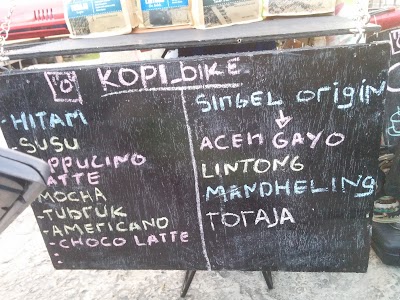 KOPI_BIKE
-HITAM
-SUSU
PPUCINO
ATTE
MOCHA
-TUBRUK
-AMERICANO
-CHOCO LATTE
SINGEL ORIGIN
ACEH GAYO
LINTONG
MANDHELING
TORAJA